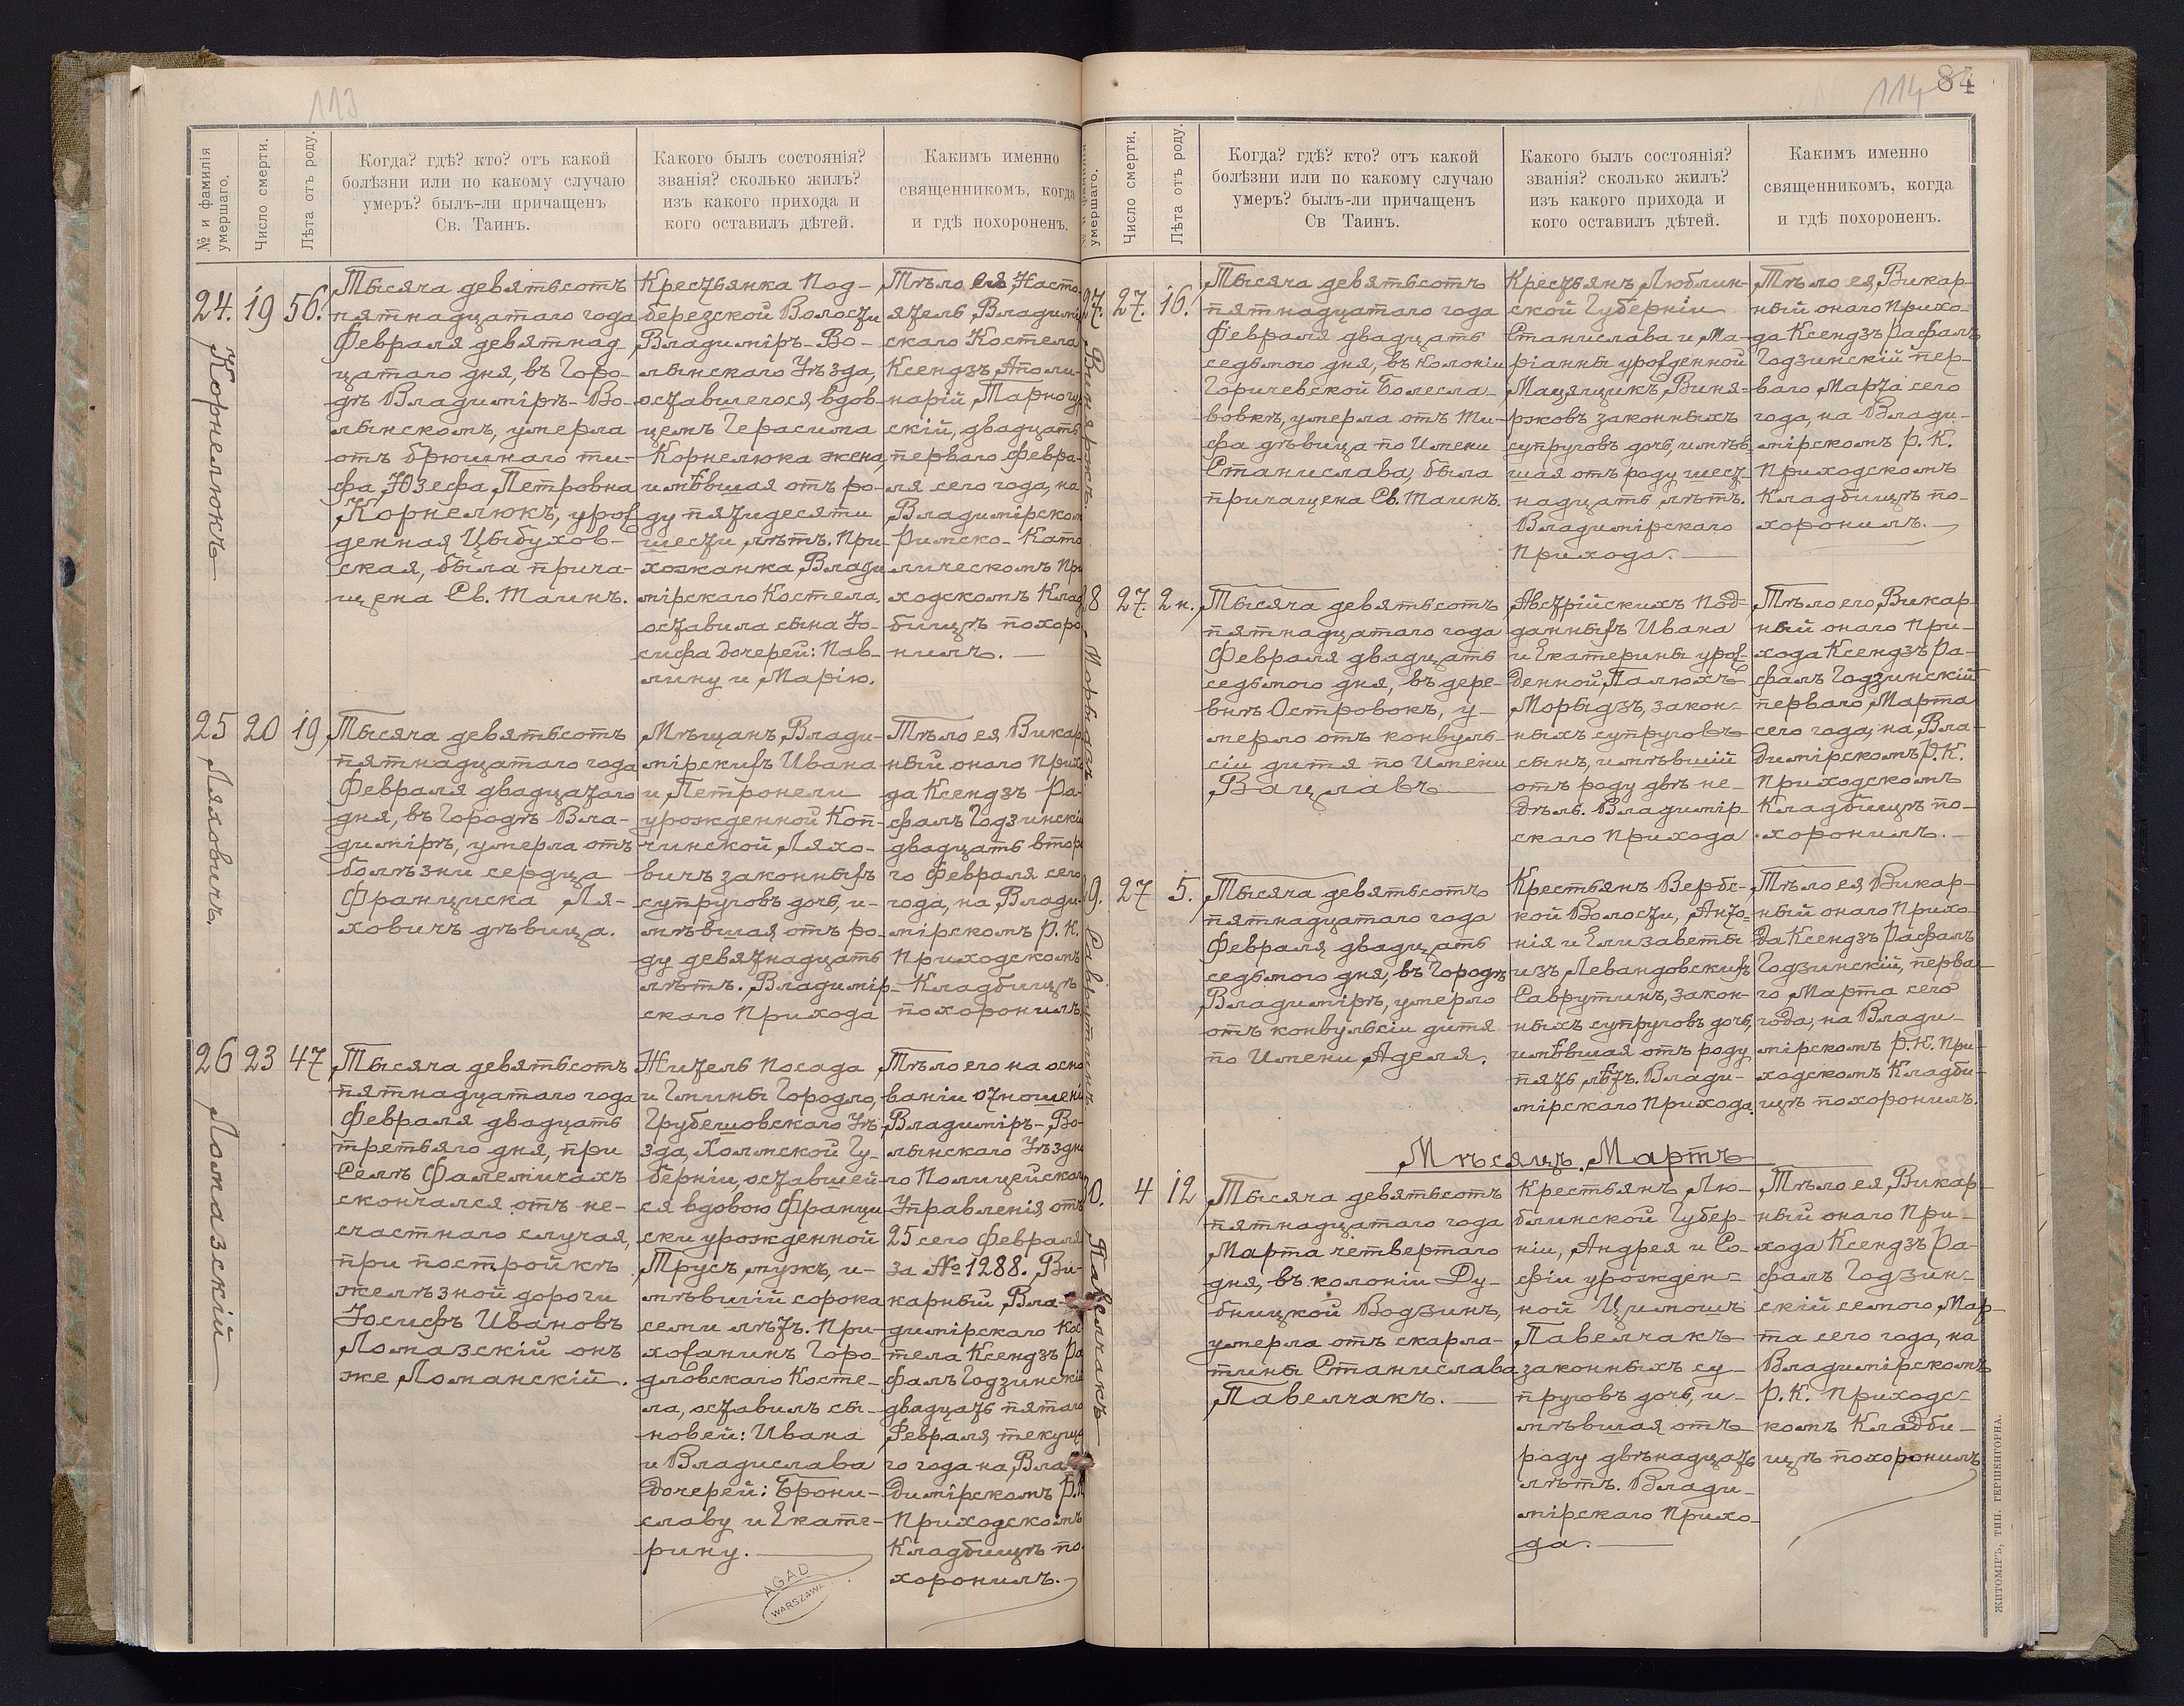 113
№ и фамилія умершаго.
Число смерти.
Лѣта отъ роду.
Когда? гдѣ? кто? отъ какой
болѣзни или по какому случаю
умеръ? былъ-ли причащенъ
Св. Таинъ.
Какого былъ состоянія?
званія? сколько жилъ?
изъ какого прихода и
кого оставилъ дѣтей.
Какимъ именно
священникомъ, когда
и гдѣ похороненъ.
24.
Корнелюкъ
19
56.
Тысяча девятьсотъ
пятнадцатаго года
Февраля девятнад-
цатаго дня, въ Горо-
дѣ Владимірѣ-Во-
лынскомъ, умерла
отъ брюшнаго ти-
фа Юзефа Петровна
Корнелюкъ, урож-
денная Цыбухов-
ская, была прича-
щена Св. Таинъ.
Крестьянка Под-
березской Волости
Владиміръ-Во-
лынскаго Уѣзда,
оставшегося вдов-
цемъ Герасима
Корнелюка жена,
имѣвшая отъ ро-
ду пятидесяти
шести лѣтъ. При-
хожанка Влади-
мірскаго Костела.
оставила сына Іо-
сифа дочерей: Пав-
лину и Марію.
Тѣло ея, Насто-
ятель Владимір
скаго Костела
Ксендзъ Аполи-
нарій Тарногур
скій, двадцать
перваго Февра-
ля сего года, на
Владимірском
Римско-Като
лическомъ При
ходскомъ Клад
бищѣ похоро
нилъ.
25
Ляховичъ.
20
19
Тысяча девятьсотъ
пятнадцатаго года
Февраля двадцатого
дня, въ Городѣ Вла-
димірѣ, умерла отъ
болѣзни сердца
Франциска Ля-
ховичъ дѣвица.
Мѣщанъ Влади-
мірскихъ Ивана
и Петронели
урожденной Коп-
чинской Ляхо-
вичъ законныхъ
супруговъ дочь, и-
мѣвшая отъ ро-
ду девятнадцать
лѣтъ. Владимір-
скаго Прихода
Тѣло ея Викар
ный онаго Прихо
да Ксендзъ Ра-
фалъ Годзинскій
двадцать втор
го Февраля сего
года, на Влади-
мірскомъ Р. К.
Приходскомъ
Кладбищѣ
похоронилъ
26
Ломазскій
23
47
Тысяча девятьсотъ
пятнадцатаго года
Февраля двадцать
третьяго дня, при
Селѣ Фалемичахъ
скончался отъ не-
счастнаго случая,
при постройкѣ
желѣзной дороги
Іосифъ Ивановъ
Ломазскій онъ
же Ломанскій.
Житель Посада
и Гмины Городло,
Грубешовскаго Уѣ-
зда, Холмской Гу-
берніи, оставшей-
ся вдовою Францис-
ки урожденной
Трусъ мужъ, и-
мѣвшій сорока
семи лѣтъ. При-
хожанинъ Горо-
дловскаго Косте-
ла, оставилъ сы-
новей: Ивана
и Владислава
дочерей: Брони-
славу и Екате-
рину.
Тѣло его на осно
ваніи отношені
Владиміръ-Во-
лынскаго Уѣздна
го Полицейскаго
Управленія отъ
25 сего Февраля
за № 1288. Ви-
карный Вла-
димірскаго Ко
тела Ксендзъ Ра
фалъ Годзинскій
двадцать пятаго
Февраля текуща
го года на Вла
димірскомъ Р.К
Приходскомъ
Кладбищѣ по-
хоронилъ.
AGAD
WARSZAWA
114
84
№ и фамилія умершаго.
Число смерти.
Лѣта отъ роду.
Когда? гдѣ? кто? отъ какой
болѣзни или по какому случаю
умеръ? былъ-ли причащенъ
Св Таинъ.
Какого былъ состоянія?
званія? сколько жилъ?
изъ какого прихода и
кого оставилъ дѣтей.
Какимъ именно
священникомъ, когда
и гдѣ похороненъ.
27.
Винярожъ.
27.
16.
Тысяча девятьсотъ
пятнадцатаго года
Февраля двадцать
седьмого дня, въ колоніи
Горичевской Болесла-
вовкѣ, умерла отъ ти-
фа дѣвица по Имени
Станислава, была
причащена Св. Таинъ.
Крестьянъ Люблин-
ской Губерніи
Станислава и Ма-
ріанны урожденной
Мацящикъ Виня-
рожовъ законныхъ
супруговъ дочь, имѣв-
шая отъ роду шест-
надцать лѣтъ.
Владимірскаго
Прихода.
Тѣло ея, Викар-
ный онаго Прихо-
да Ксендзъ Рафалъ
Годзинскій пер-
ваго Марта сего
года, на Влади-
мірскомъ Р. К.
Приходскомъ
Кладбищѣ по-
хоронилъ.
28
Морыдзъ
27.
2 н.
Тысяча девятьсотъ
пятнадцатаго года
Февраля двадцать
седьмого дня, въ дере-
внѣ Островокъ, у-
мерло отъ конвуль-
сіи дитя по Имени
Вацлавъ
Австрійскихъ Под-
данныхъ Ивана
и Екатерины урож-
денной Палюхъ
Морыдзъ, закон-
ныхъ супруговъ
сынъ, имѣвшій
отъ роду двѣ не-
дѣль. Владимір-
скаго Прихода
Тѣло его, Викар-
ный онаго При-
хода Ксендзъ Ра-
фалъ Годзинскій
перваго Марта
сего года, на Вла-
димірскомъ Р.К.
Приходскомъ
Кладбищѣ по-
хоронилъ.
29.
Саврутинъ.
27
5.
Тысяча девятьсотъ
пятнадцатаго года
Февраля двадцать
седьмого дня, въ Городѣ
Владимірѣ, умерло
отъ конвульсіи дитя
по Имени Аделя.
Крестьянъ Вербс-
кой Волости, Анто-
нія и Елизаветы
изъ Левандовскихъ
Саврутинъ, закон-
ныхъ супруговъ дочь,
имѣвшая отъ роду
пять лѣтъ. Влади-
мірскаго Прихода.
Тѣло ея Викар-
ный онаго Прихо-
да Ксендзъ Рафалъ
Годзинскій, перва-
го Марта сего
года, на Влади-
мірскомъ Р.К. При-
ходскомъ Кладби-
щѣ похоронилъ.
Мѣсяцъ Мартъ
30.
Павелчакъ
4
12
Тысяча девятьсотъ
пятнадцатаго года
Марта четвертаго
дня, въ колоніи Ду-
бницкой Водзинъ,
умерла отъ скарла-
тины Станислава
Павелчакъ.
Крестьянъ Лю-
блинской Губер-
ніи, Андрея и Со-
фіи урожден-
ной Цимошъ
Павелчакъ
законныхъ су-
пруговъ дочь, и-
мѣвшая отъ
роду двѣнадцать
лѣтъ. Влади-
мірскаго Прихо-
да.
Тѣло ея, Викар-
ный онаго При-
хода Ксендзъ Ра-
фалъ Годзин-
скій семого Мар-
та сего года, на
Владимірскомъ
Р.К. Приходс-
комъ Кладби-
щѣ похоронилъ
ЖИТОМІРЪ, ТИП. ГЕРШЕНГОРНА.